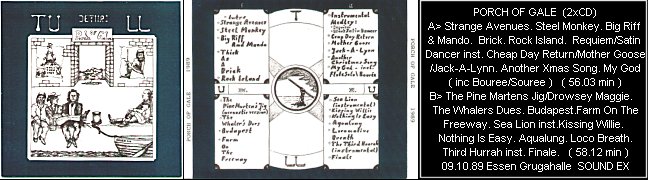 TU LL
DETURS
T
Intro
Strange Avenues
Steel Monkey
Big Riff
And Mando
Think
As
A
Brick
Rock Island
Instrumental
Medley:
Cheap Day Return
Mother Goose
Jack-A-Lynn
Another
Christmas Song
My God - incl.
Flute Solo & Bourée
U
The
Pine Marten's Jig
The
Whaler's Dues
Budapest
Farm
On
The
Freeway
Sea Lion
(instrumental)
Kissing Willie
Nothing Is Easy
Aqualung
Locomotive
Breath
The Third Hurrah
(instrumental)
Finale
L
PORCH OF GALE
1989
PORCH OF GALE
1989
PORCH OF GALE (2xCD)
A> Strange Avenues. Steel Monkey. Big Riff
& Mando. Brick. Rock Island. Requiem/Satin
Dancer inst. Cheap Day Return/Mother Goose
/Jack-A-Lynn. Another Xmas Song. My God
( inc Bouree/Souree ) ( 56.03 min )
B> The Pine Martens Jig/Drowsey Maggie.
The Whalers Dues. Budapest.Farm On The
Freeway. Sea Lion inst.Kissing Willie.
Nothing Is Easy. Aqualung. Loco Breath.
Third Hurrah inst. Finale. ( 58.12 min )
09.10.89 Essen Grugahalle SOUND EX